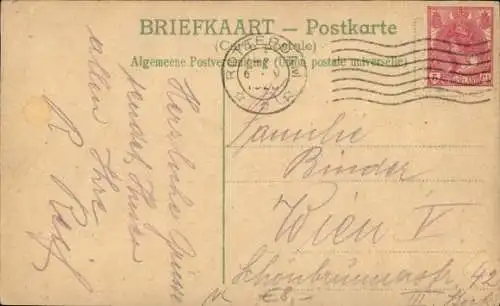 BRIEFKAART — Postkarte
(Carte postale)
Algemeene Postvereeniging (Union postale universelle)
ROTTERDAM
Herzliche Grüsse
sendet Ihnen
allen Ihre
R. Reif
Familie
Binder
Wien V.
Schönbrunnerstr 42
€8,-